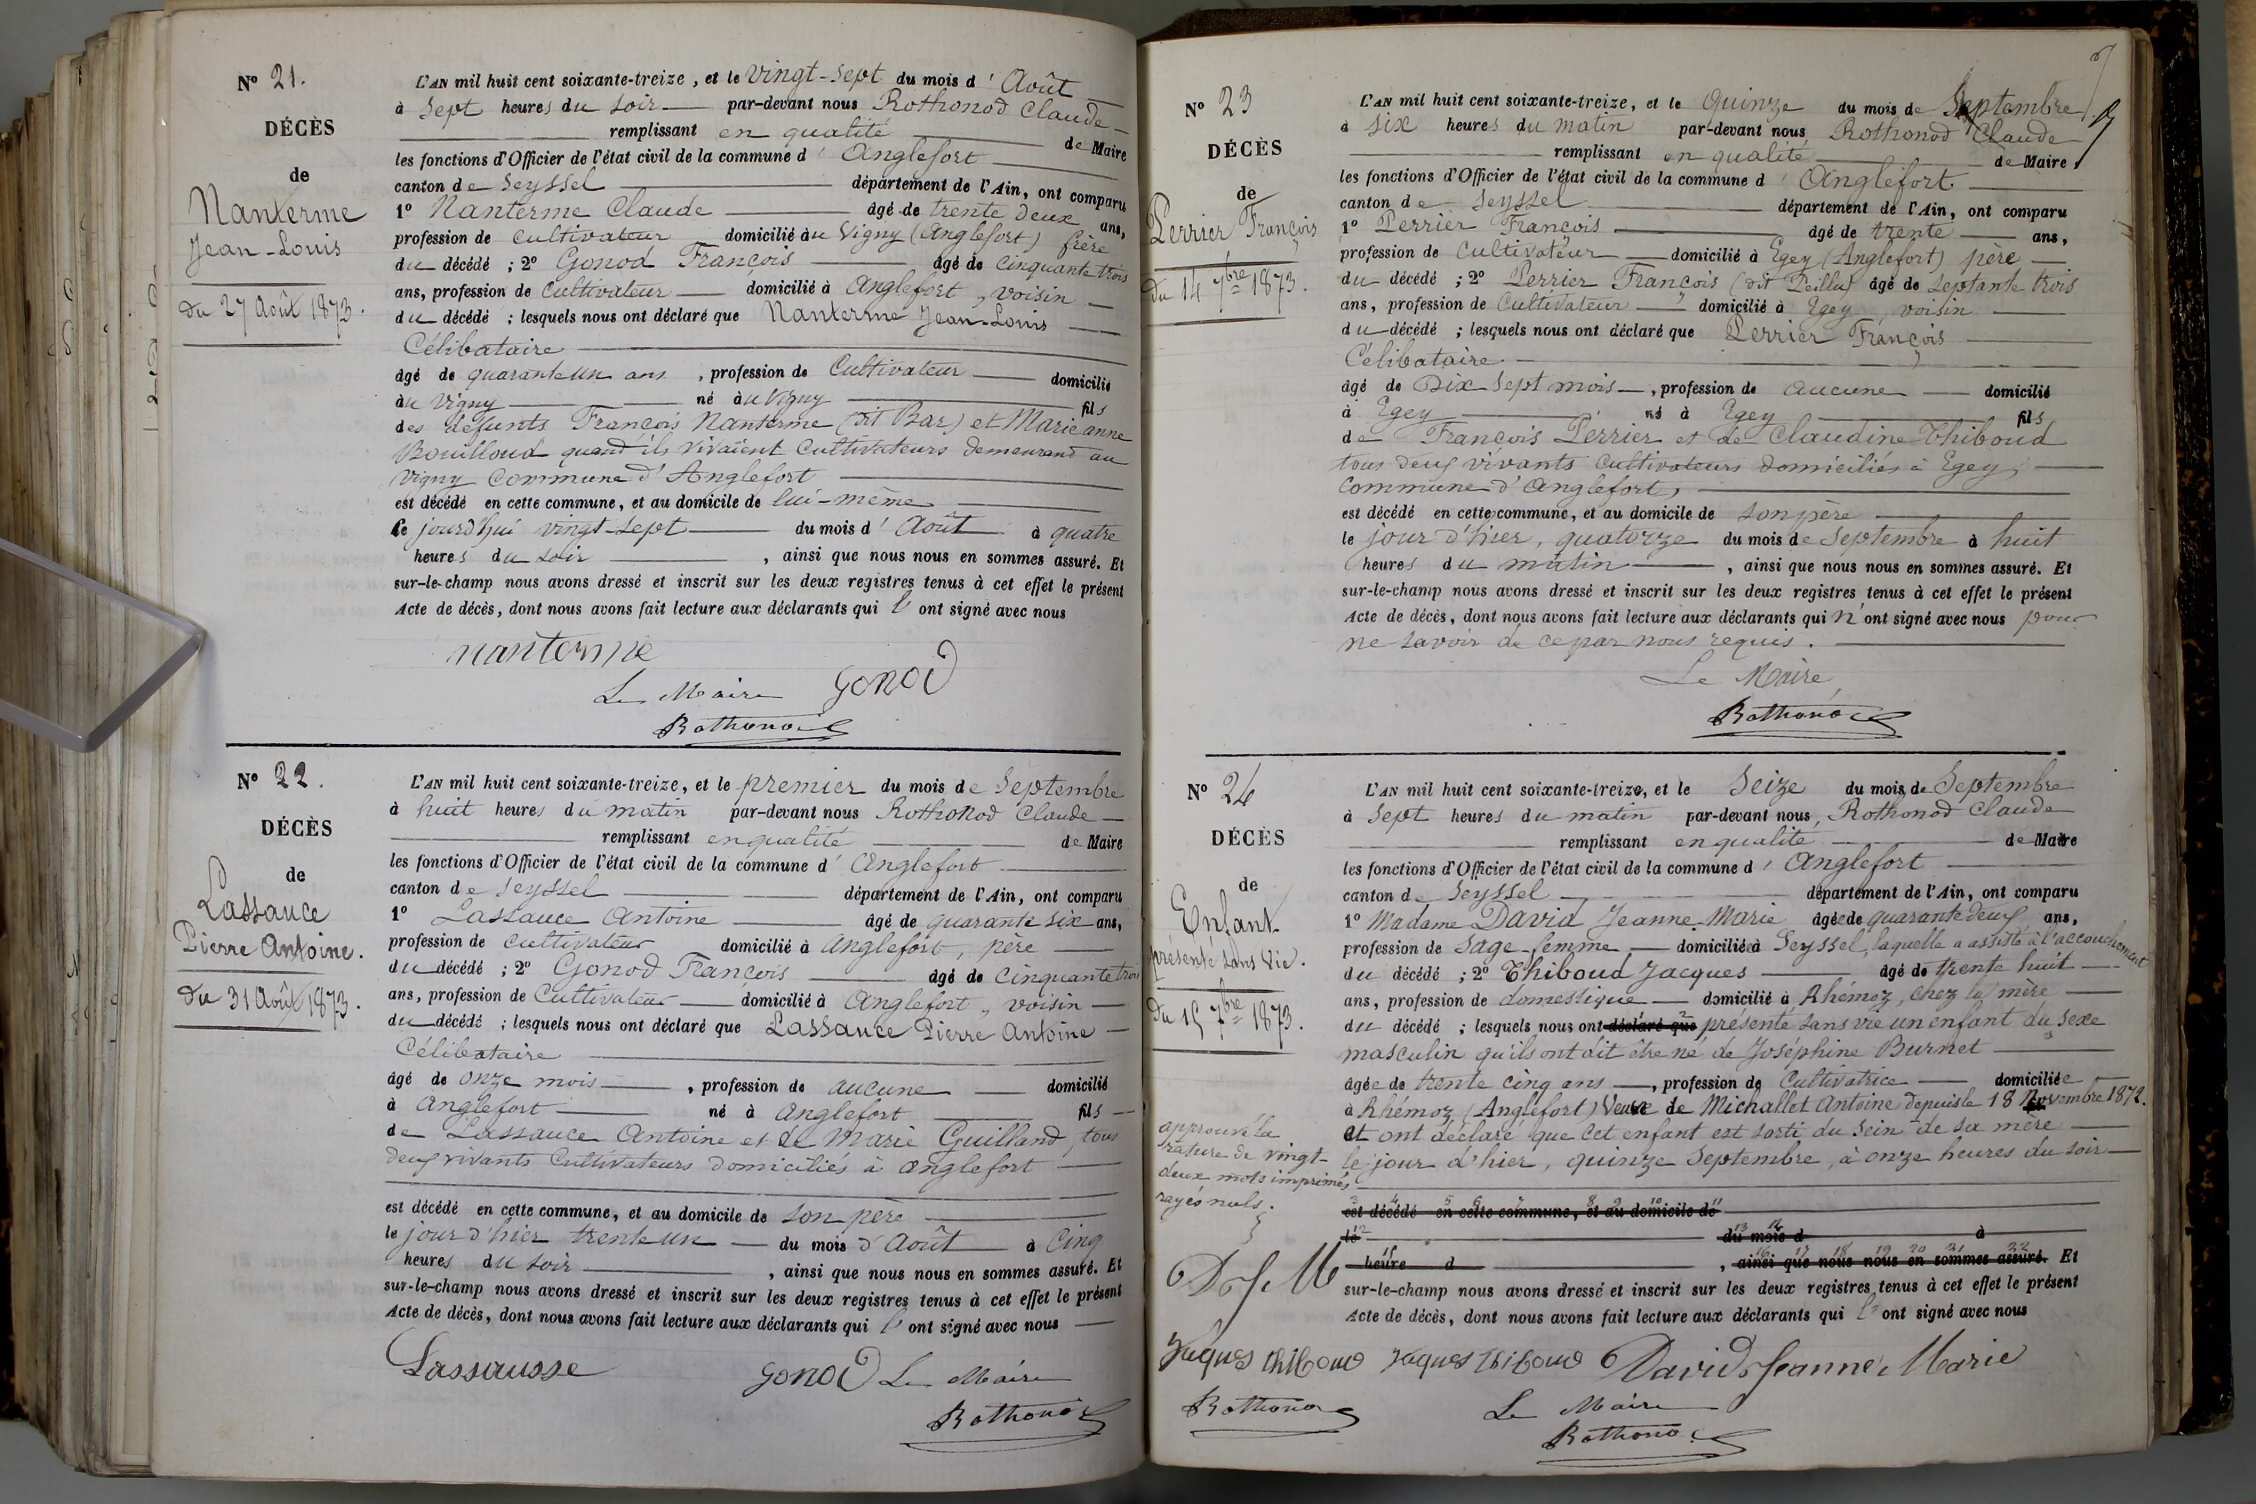 N° 21.
DÉCÈS
de
Nanterme
Jean-Louis
du 27 Août 1873.
L'AN mil huit cent soixante-treize, et le vingt-sept du mois d'Août
à sept heures du soir par-devant nous Rothonod Claude
remplissant en qualité de Maire
les fonctions d'Officier de l'état civil de la commune d'Anglefort
canton de Seyssel département de l'Ain, ont comparu
1° Nanterme Claude âgé de trente deux ans,
profession de cultivateur domicilié àu Vigny (Anglefort) frère
du décédé ; 2° Gonod François âgé de cinquante trois
ans, profession de Cultivateur domicilié à Anglefort, voisin
du décédé ; lesquels nous ont déclaré que Nanterme Jean-Louis
Célibataire
âgé de quarante un ans, profession de Cultivateur domicilié
àu Vigny né àu Vigny fils
des défunts François Nanterme (dit Bar) et Marie anne
Bouilloud quand ils vivaient Cultivateurs demeurand au
Vigny Commune d'Anglefort
est décédé en cette commune, et au domicile de lui-même
le jourd'hui vingt-sept du mois d'Août à quatre
heures du soir, ainsi que nous nous en sommes assuré. Et
sur-le-champ nous avons dressé et inscrit sur les deux registres tenus à cet effet le présent
Acte de décès, dont nous avons fait lecture aux déclarants qui l'ont signé avec nous
nanterme
Le Maire Gonod
Rothonod
N° 22.
DÉCÈS
de
Lassauce
Pierre Antoine.
du 31 Août 1873.
L'AN mil huit cent soixante-treize, et le premier du mois de Septembre
à huit heures du matin par-devant nous Rothonod Claude
remplissant en qualité de Maire
les fonctions d'Officier de l'état civil de la commune d'Anglefort
canton de Seyssel département de l'Ain, ont comparu
1° Lassauce Antoine âgé de quarante six ans,
profession de cultivateur domicilié à Anglefort, père
du décédé ; 2° Gonod François âgé de cinquante trois
ans, profession de Cultivateur domicilié à Anglefort, voisin
du décédé ; lesquels nous ont déclaré que Lassauce Pierre Antoine
Célibataire
âgé de onze mois, profession de aucune domicilié
à Anglefort né à Anglefort fils
de Lassauce Antoine et de Marie Guilland, tous
deux vivants Cultivateurs domiciliés à Anglefort
est décédé en cette commune, et au domicile de son père
le jour d'hier trente un du mois d'Août à Cinq
heures du soir, ainsi que nous nous en sommes assuré. Et
sur-le-champ nous avons dressé et inscrit sur les deux registres tenus à cet effet le présent
Acte de décès, dont nous avons fait lecture aux déclarants qui l'ont signé avec nous
Lassausse Gonod Le Maire
Rothonod
N° 23
DÉCÈS
de
Perrier François
du 14 7bre 1873.
L'AN mil huit cent soixante-treize, et le quinze du mois de Septembre
à six heures du matin par-devant nous Rothonod Claude
remplissant en qualité de Maire,
les fonctions d'Officier de l'état civil de la commune d'Anglefort
canton de Seyssel département de l'Ain, ont comparu
1° Perrier François âgé de trente ans,
profession de Cultivateur domicilié à Egey (Anglefort) père
du décédé ; 2° Perrier François (dit Peillu) âgé de septante trois
ans, profession de Cultivateur domicilié à Egey, voisin
du décédé ; lesquels nous ont déclaré que Perrier François
Célibataire
âgé de Dix sept mois, profession de aucune domicilié
à Egey né à Egey fils
de François Perrier et de Claudine Thiboud
tous deux vivants Cultivateurs domiciliés à Egey,
Commune d'Anglefort,
est décédé en cette commune, et au domicile de son père
le jour d'hier, quatorze du mois de Septembre à huit
heures du matin, ainsi que nous nous en sommes assuré. Et
sur-le-champ nous avons dressé et inscrit sur les deux registres tenus à cet effet le présent
Acte de décès, dont nous avons fait lecture aux déclarants qui n'ont signé avec nous pour
ne savoir de ce par nous requis.
Le Maire,
Rothonod
N° 24
DÉCÈS
de
Enfant
présenté sans vie.
du 15 7bre 1873.
L'AN mil huit cent soixante-treize, et le Seize du mois de Septembre
à Sept heures du matin par-devant nous, Rothonod Claude
remplissant en qualité de Maire
les fonctions d'Officier de l'état civil de la commune d'Anglefort
canton de Seyssel département de l'Ain, ont comparu
1° Madame David Jeanne Marie âgée de quarante deux ans,
profession de Sage-femme, domiciliée à Seyssel, laquelle a assisté à l'accouchement
du décédé ; 2° Thiboud Jacques âgé de trente huit
ans, profession de domestique domicilié à Rhémoz, chez la mère
du décédé ; lesquels nous ont déclaré que présenté sans vie un enfant du sexe
masculin qu'ils ont dit être né de Joséphine Burnet
âgée de trente cinq ans, profession de Cultivatrice domiciliée
à Rhémoz (Anglefort) Veuve de Michallet Antoine depuis le 18 Novembre 1872.
et ont déclaré que cet enfant est sorti du sein de sa mère
le jour d'hier, quinze Septembre, à onze heures du soir
est décédé en cette commune, et au domicile de
le du mois d à
heure d, ainsi que nous nous en sommes assuré. Et
sur-le-champ nous avons dressé et inscrit sur les deux registres tenus à cet effet le présent
Acte de décès, dont nous avons fait lecture aux déclarants qui l'ont signé avec nous
approuvé la
rature de vingt-
deux mots imprimés
rayés nuls.
D J M
Jaques thiboud Jaques thiboud David Jeanne Marie
Rothonod Le Maire
Rothonod